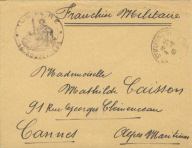 Franchise Militaire
Mademoiselle
Mathilde Caisson
91 Rue Georges Clémenceau
Cannes Alpes Maritimes